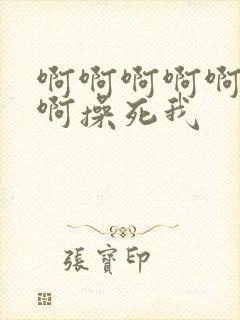 啊啊啊啊啊
啊操死我
張寶印